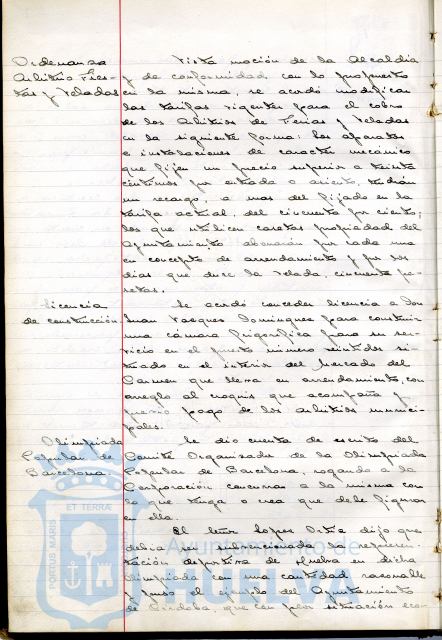 Ordenanza
Arbitrio Fies-
tas y Veladas
Vista moción de la Alcaldía
y de conformidad con lo propuesto
en la misma, se acordó modificar
las tarifas vigentes para el cobro
de los Arbitrios de Ferias y Veladas
en la siguiente forma: Los aparatos
e instalaciones de caracter mecánico
que fijen un precio superior a treinta
céntimos por entrada o asiento, tendrán
un recargo, a mas del fijado en la
tarifa actual, del cincuenta por ciento;
los que utilicen casetas propiedad del
Ayuntamiento abonarán por cada una
en concepto de arrendamiento y por los
dias que dure la Velada, cincuenta pe-
setas.
Licencia
de construcción
Se acordó conceder licencia a Don
Juan Vasques Dominguez para construir
una cámara frigorífica para su ser-
vicio en el puesto número veintidos si-
tuado en el interior del Mercado del
Carmen que lleva en arrendamiento, con
arreglo al croquis que acompaña y
previo pago de los arbitrios munici-
pales.
Olimpiada
Popular de
Barcelona
Se dio cuenta de escrito del
Comité Organizador de la Olimpiada
Popular de Barcelona, rogando a la
Corporación concurra a la misma con
lo que tenga o crea que debe figurar
en ella.
El señor Lopes dijo que
debia ser subvencionada la represen-
tación deportiva de Huelva en dicha
Olimpiada con una cantidad razonable
y puso el ejemplo del Ayuntamiento
de Córdoba, que con peor situación eco-
PORTUS MARIS ET TERRAE
Ayuntamiento de
HUELVA